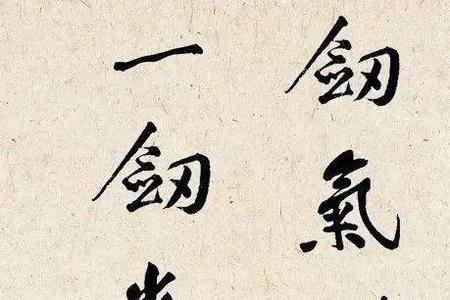 劒氣
一劒